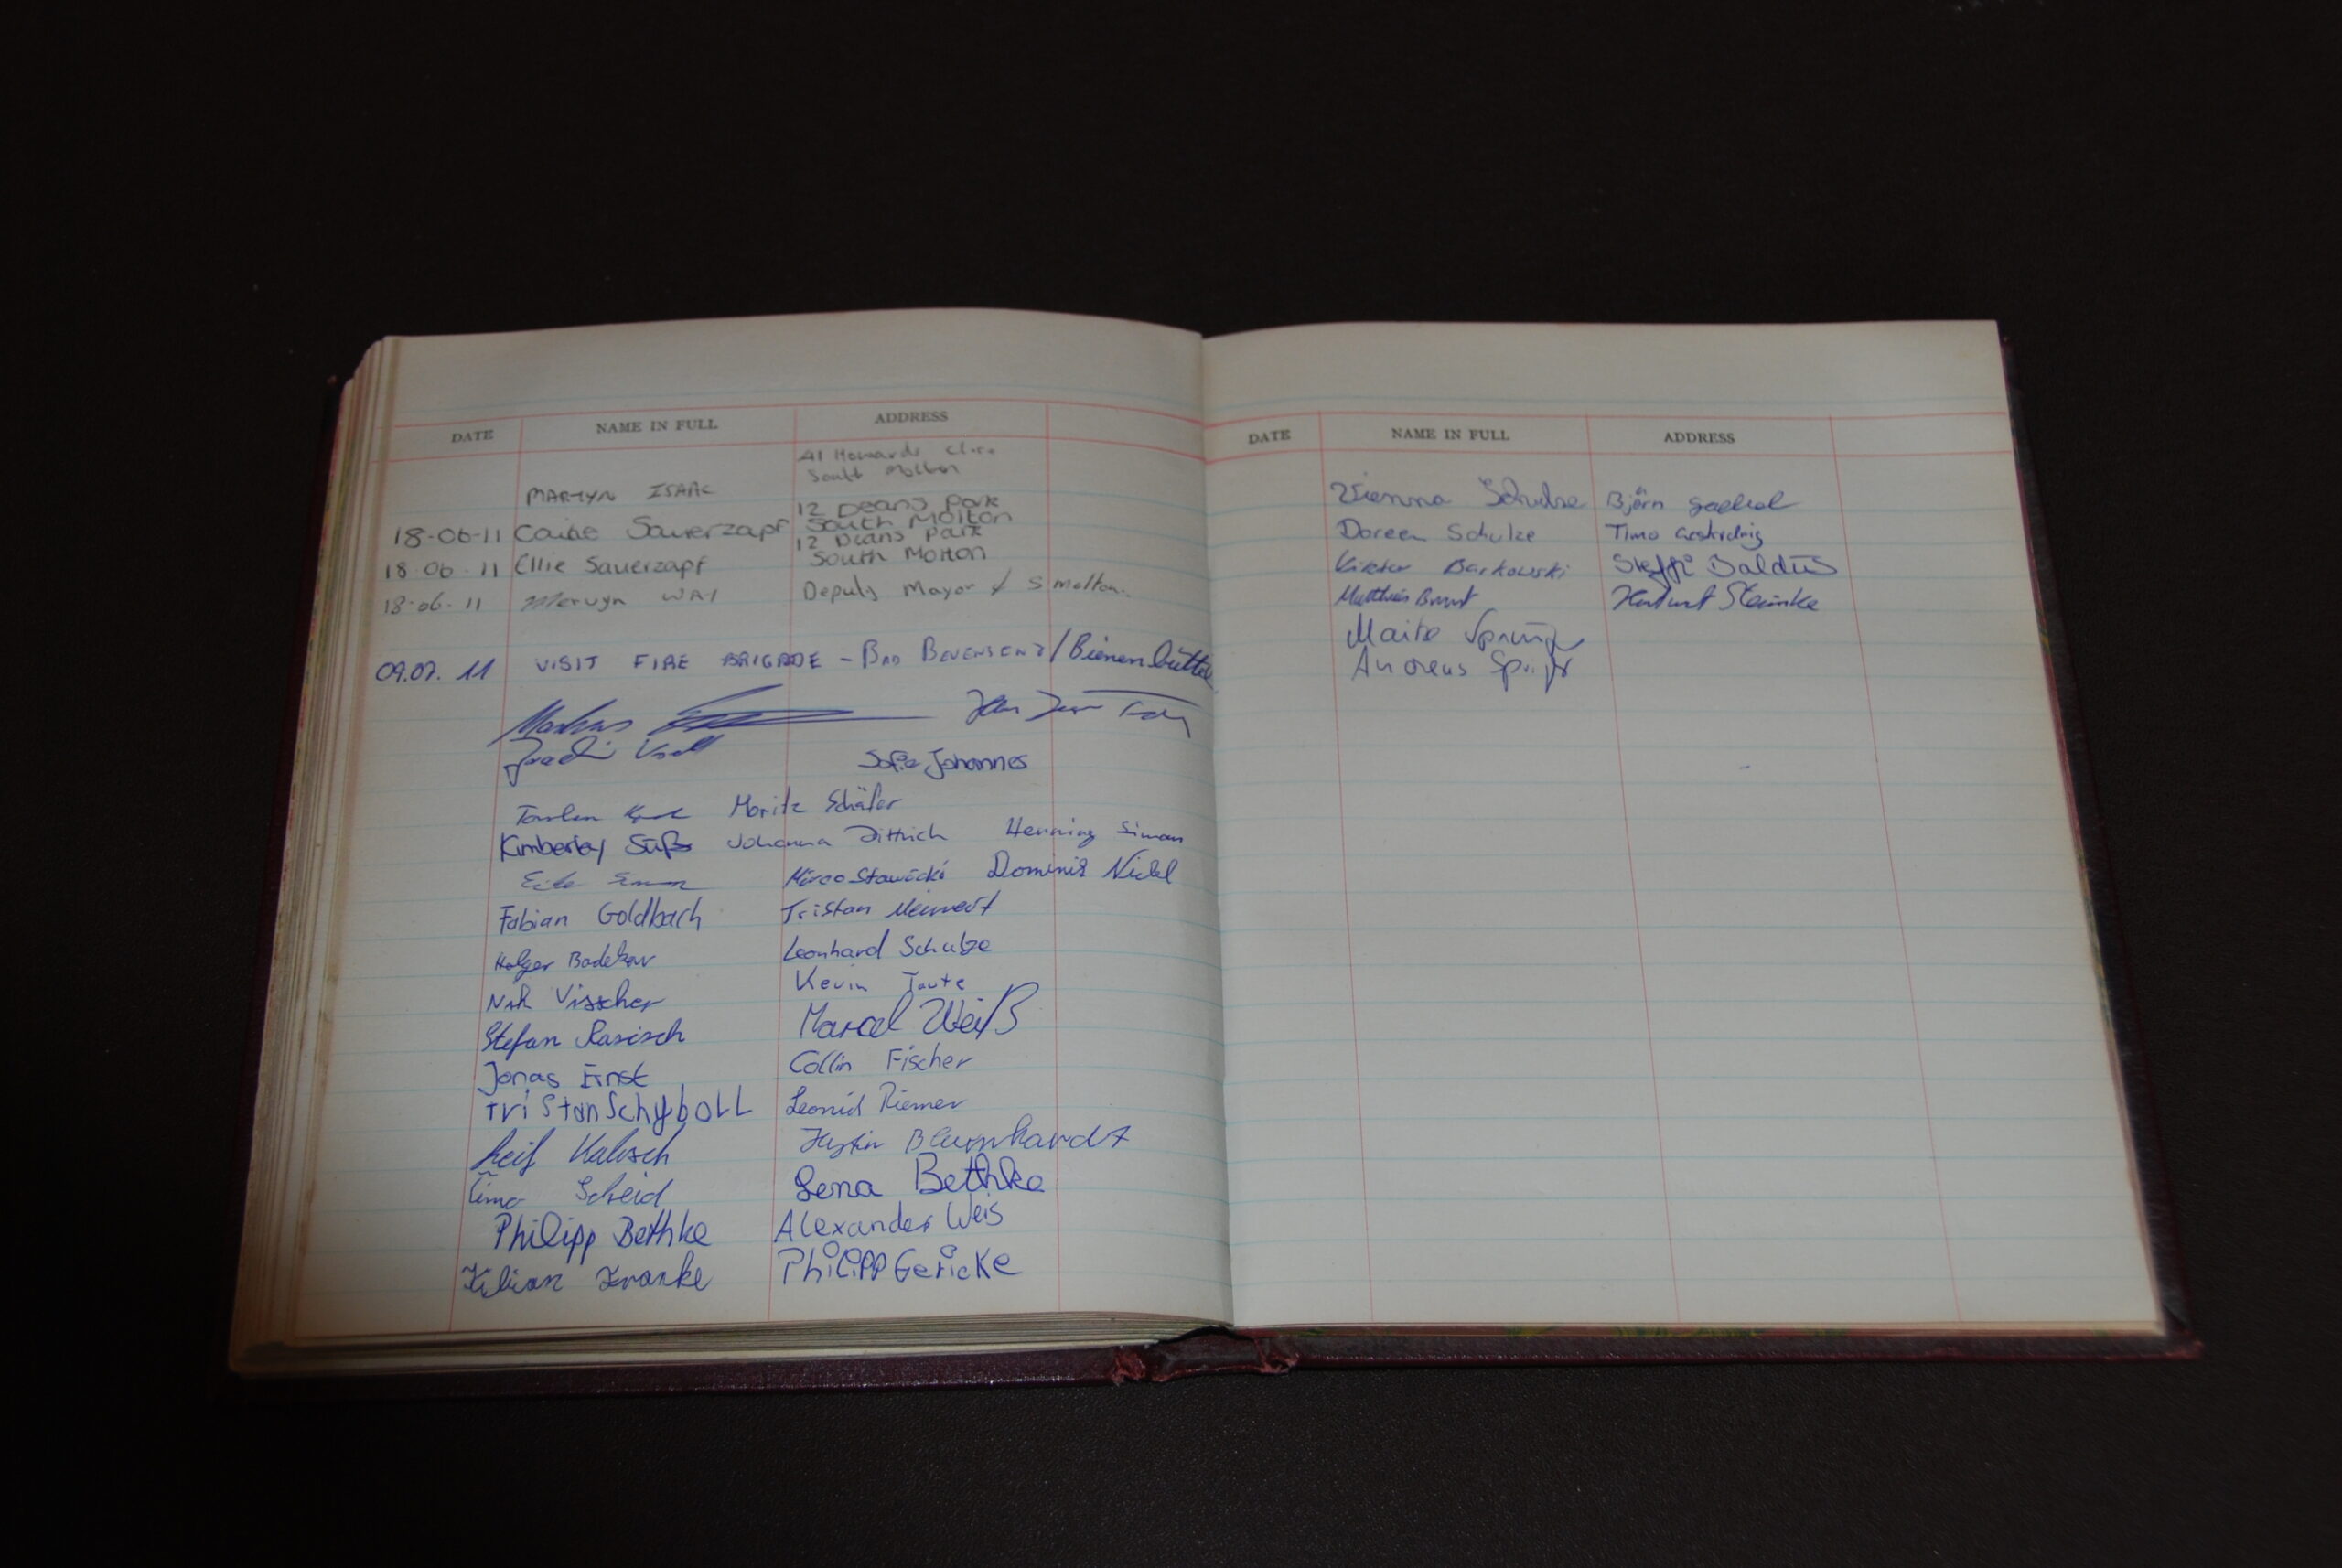 DATE NAME IN FULL ADDRESS
41 Howards
South Molton
MARTYN ISAAC
12 Deans Park
18-06-11 Sauerzapf South Molton
12 Deans Park
18.06.11 Ellie Sauerzapf South Molton
18.06.11 Mervyn WAY Deputy Mayor Molton.
09.07.11 VISIT FIRE BRIGADE - BAD BEVENSEN / Bienenbüttel
Markus
Sofie Johannes
Moritz Schäfer
Kimberley Süß Johanna Dittrich Henning Simon
Mirco Stawicki Dominik Nickel
Fabian Goldbach Tristan Meinert
Holger Leonhard Schulze
Visscher Kevin Taute
Stefan Marcel Weiß
Jonas Ernst Collin Fischer
TriStan Schyboll Leonid Riemer
Leif Justin Blumhardt
Timo Scheid Lena Bethke
Philipp Bethke Alexander Weis
Kilian Franke Philipp Gericke
DATE NAME IN FULL ADDRESS
Vienna Schulze Björn
Doreen Schulze Timo
Viktor Barkowski Steffi Baldus
Matthias Steinke
Andreas